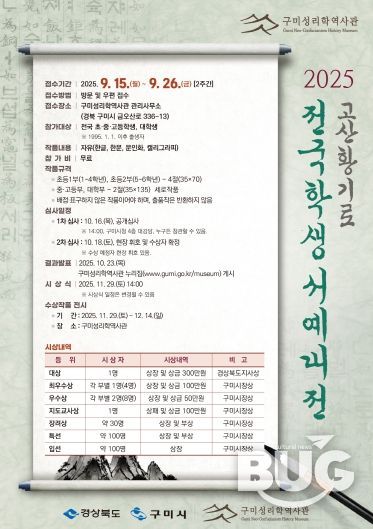 구미성리학역사관
Gumi Neo-Confucianism History Museum
2025
고산황기로
전국학생서예대전
접수기간 | 2025. 9. 15.(월) ~ 9. 26.(금) [2주간]
접수방법 | 방문 및 우편 접수
접수장소 | 구미성리학역사관 관리사무소
(경북 구미시 금오산로 336-13)
참가대상 | 전국 초·중·고등학생, 대학생
※ 1995. 1. 1. 이후 출생자
작품내용 | 자유(한글, 한문, 문인화, 캘리그라피)
참 가 비 | 무료
작품규격
초등1부(1~4학년), 초등2부(5~6학년) - 4절(35×70)
중·고등부, 대학부 - 2절(35×135) 세로작품
배접·표구하지 않은 작품이어야 하며, 출품작은 반환하지 않음
심사일정
1차 심사 : 10. 16.(목), 공개심사
※ 14:00, 구미시청 4층 대강당, 누구든 참관할 수 있음.
2차 심사 : 10. 18.(토), 현장 휘호 및 수상자 확정
※ 수상 예정자 현장 휘호 있음.
결과발표 | 2025. 10. 23.(목)
구미성리학역사관 누리집(www.gumi.go.kr/museum) 게시
시 상 식 | 2025. 11. 29.(토) 14:00
※ 시상식 일정은 변경될 수 있음
수상작품 전시
기 간 : 2025. 11. 29.(토) ~ 12. 14.(일)
장 소 : 구미성리학역사관
시상내역
등 위 시 상 자 시상내역 비 고
대상 1명 상장 및 상금 300만원 경상북도지사상
최우수상 각 부별 1명(4명) 상장 및 상금 100만원 구미시장상
우수상 각 부별 2명(8명) 상장 및 상금 50만원 구미시장상
지도교사상 1명 상패 및 상금 100만원 구미시장상
장려상 약 30명 상장 및 부상 구미시장상
특선 약 100명 상장 및 부상 구미시장상
입선 약 100명 상장 구미시장상
cultural news
BUG
경상북도
구미시
구미성리학역사관
Gumi Neo-Confucianism History Museum